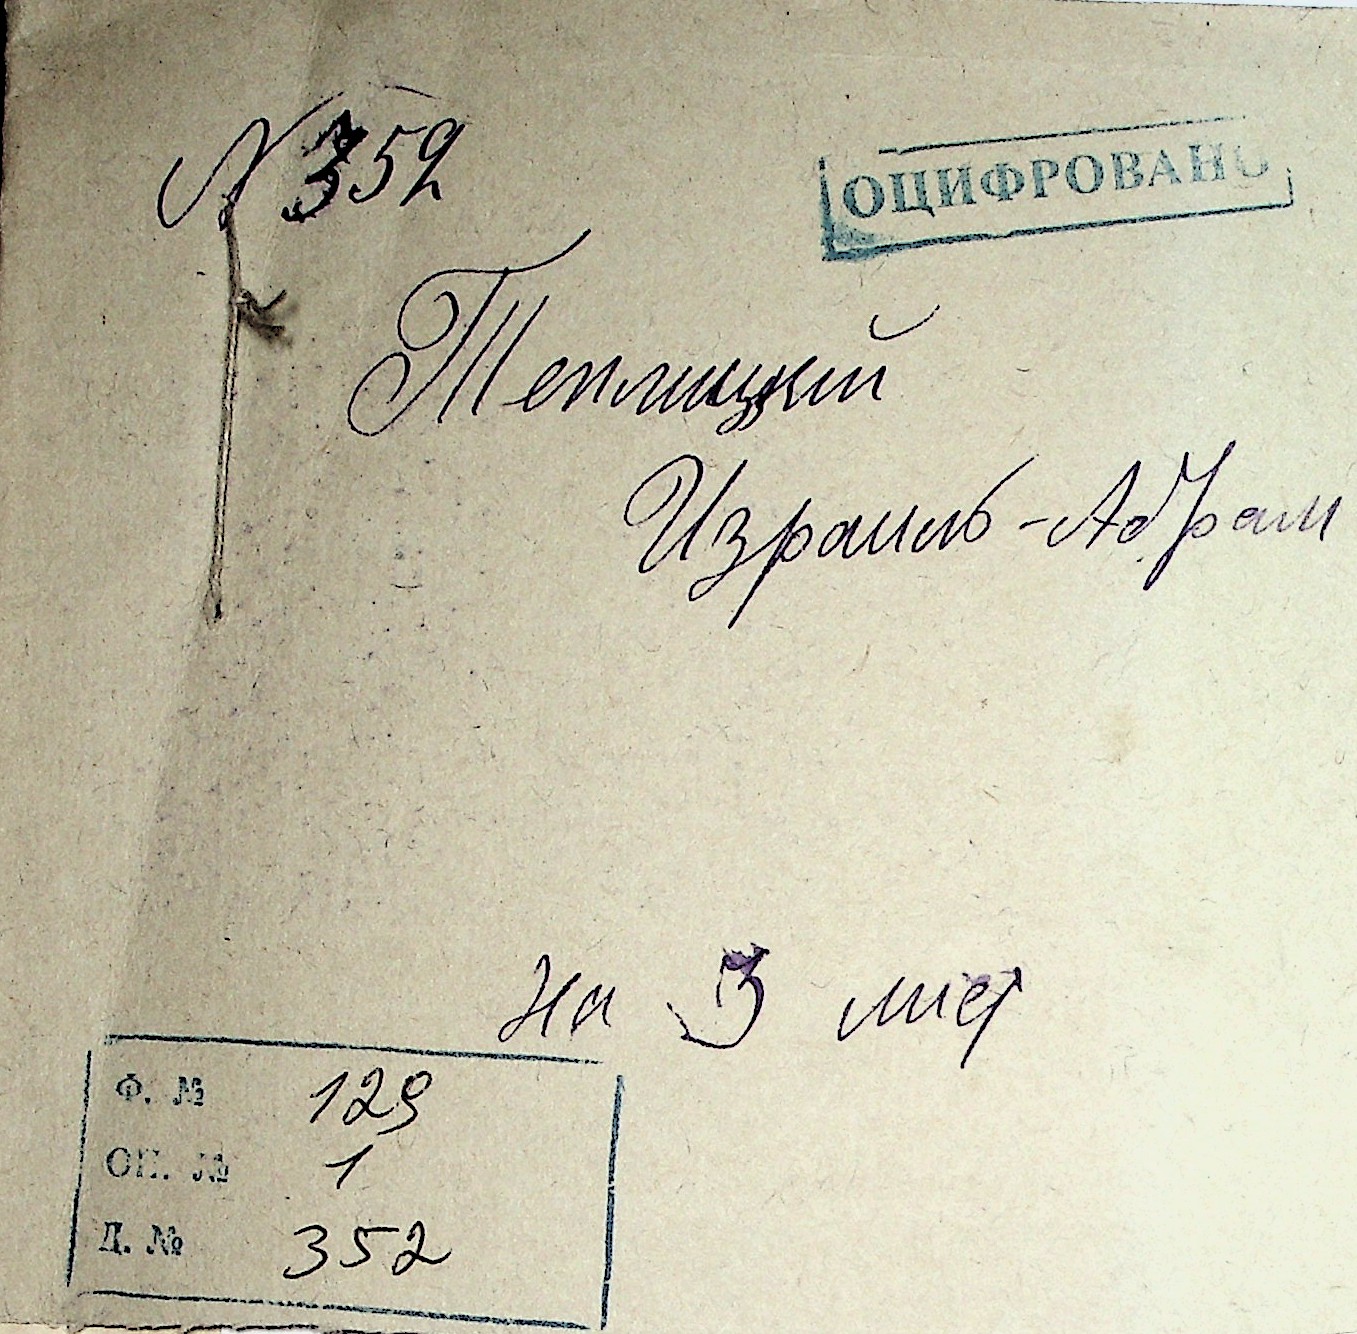 № 352
ОЦИФРОВАНО
Теплицкий
Израиль-Абрам
На 3 лист
Ф. № 129
ОП. № 1
Д. № 352